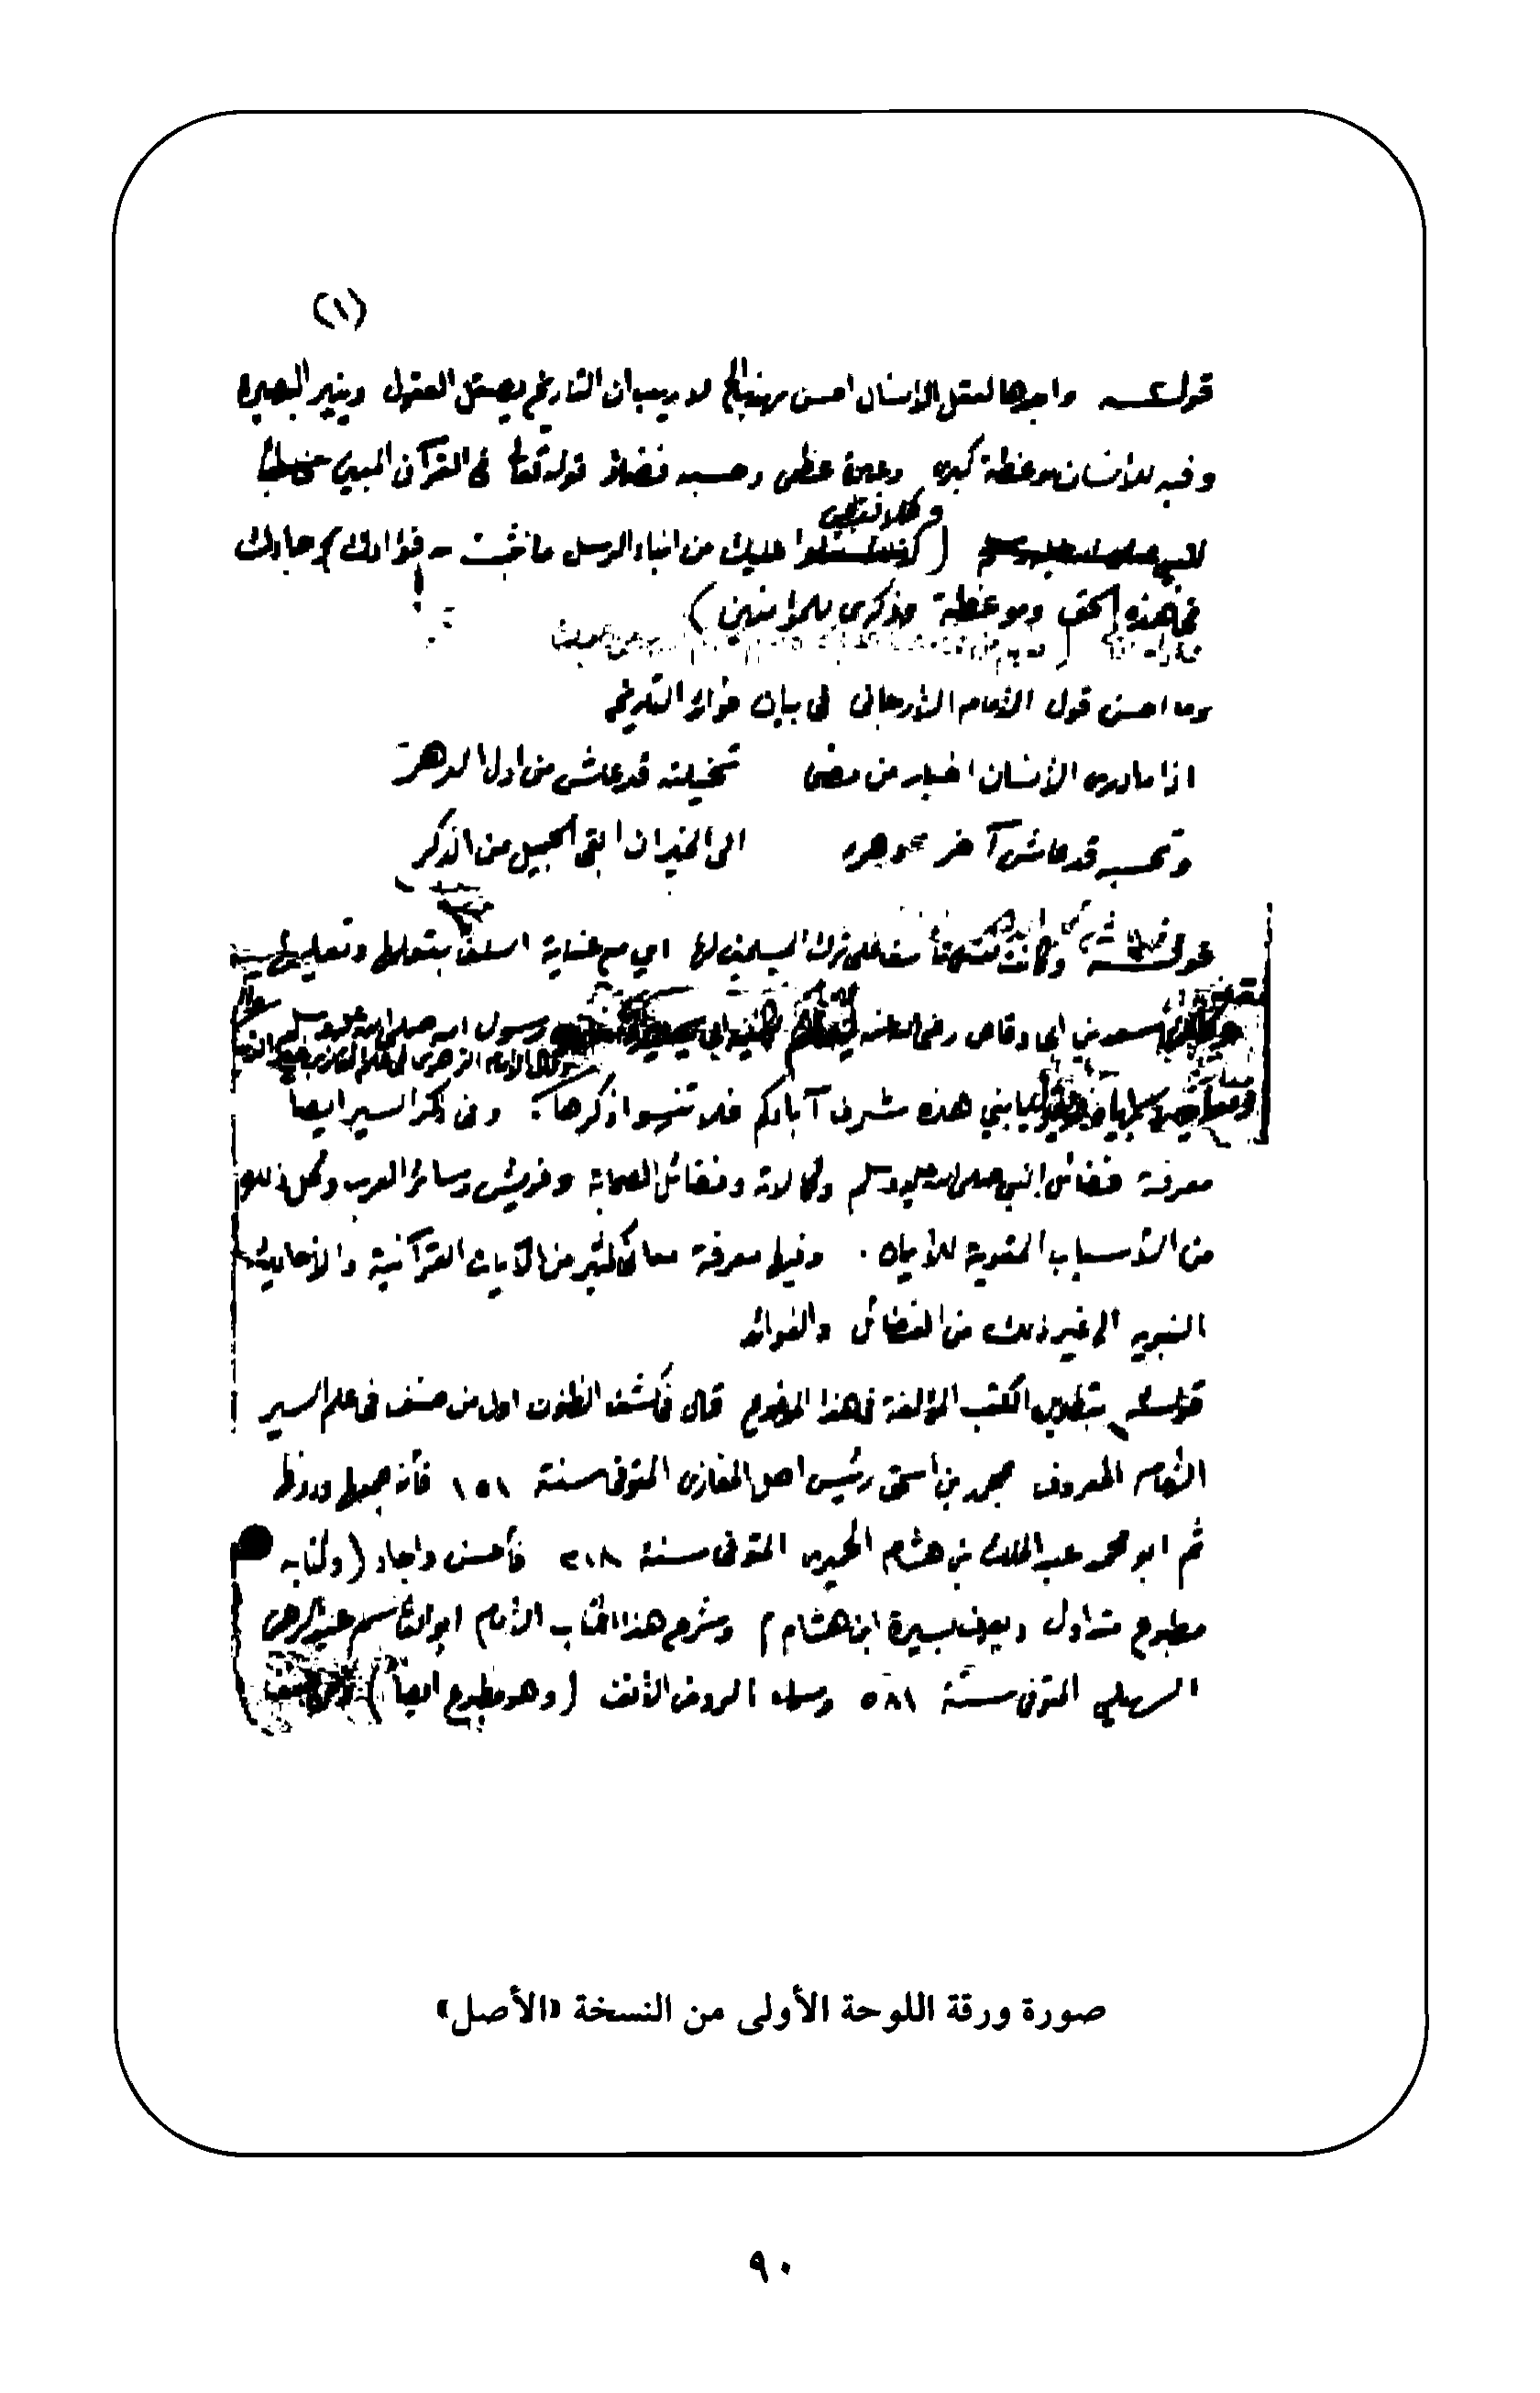 (١)
قوله واجدها لعقل الإنسان احسن تهذيب الخ لا ريب ان التاريخ يصقل العقول وينير البصيرة
وفيه للأنسان موعظة كبرى وعبرة عظمى وحسبه فضلاً قوله تعالى في القرآن المبين
وكلا نقص
عليك من انباء الرسل ما نثبت به فؤادك وجاءك
في هذه الحق وموعظة وذكرى للمؤمنين)
وما احسن قول الأمام الأرجاني في بيان فوائد التاريخ
اذا ما درى الأنسان اخبار من مضى تخيلته قد عاش من اول الدهر
وتحسبه قد عاش آخر دهره الى الحشر ان ابقى الجميل من الذكر
قوله اي مع عناية اسلافنا بتعلمها وتعليمها
سعد بن ابي وقاص رضي الله عنه رسول الله صلى الله عليه وسلم
وقال الامام الزهري في علم المغازي
يا بني هذه شرف آبائكم فلا تنسوا ذكرها. وفي ذكر السير ايضا
معرفة فضائل النبي صلى الله عليه وسلم وكمالاته وفضائل الصحابة وقريش وسائر العرب وكل ذلك
من الأسباب المقوية للأيمان. وفيها معرفة معاني كثير من الآيات القرآنية والأحاديث
النبوية الى غير ذلك من الفضائل والفوائد
قوله الكتب المؤلفة في هذا الموضوع قال في كشف الظنون اول من صنف في علم السير
الأمام المعروف محمد بن أسحق رئيس اهل المغازي المتوفى سنة ١٥١ فأنه جمعها ودونها
ثم ابو محمد عبد الملك بن هشام الحميري المتوفى سنة ٢١٨ فأحسن واجاد (وكتابه
مطبوع متداول ويعرف بسيرة ابن هشام) وشرح هذا الكتاب الأمام ابو القاسم عبد الرحمن
السهيلي المتوفى سنة ٥٨١ وسماه الروض الأنف (وهو مطبوع ايضاً)
صورة ورقة اللوحة الأولى من النسخة «الأصل»
٩٠